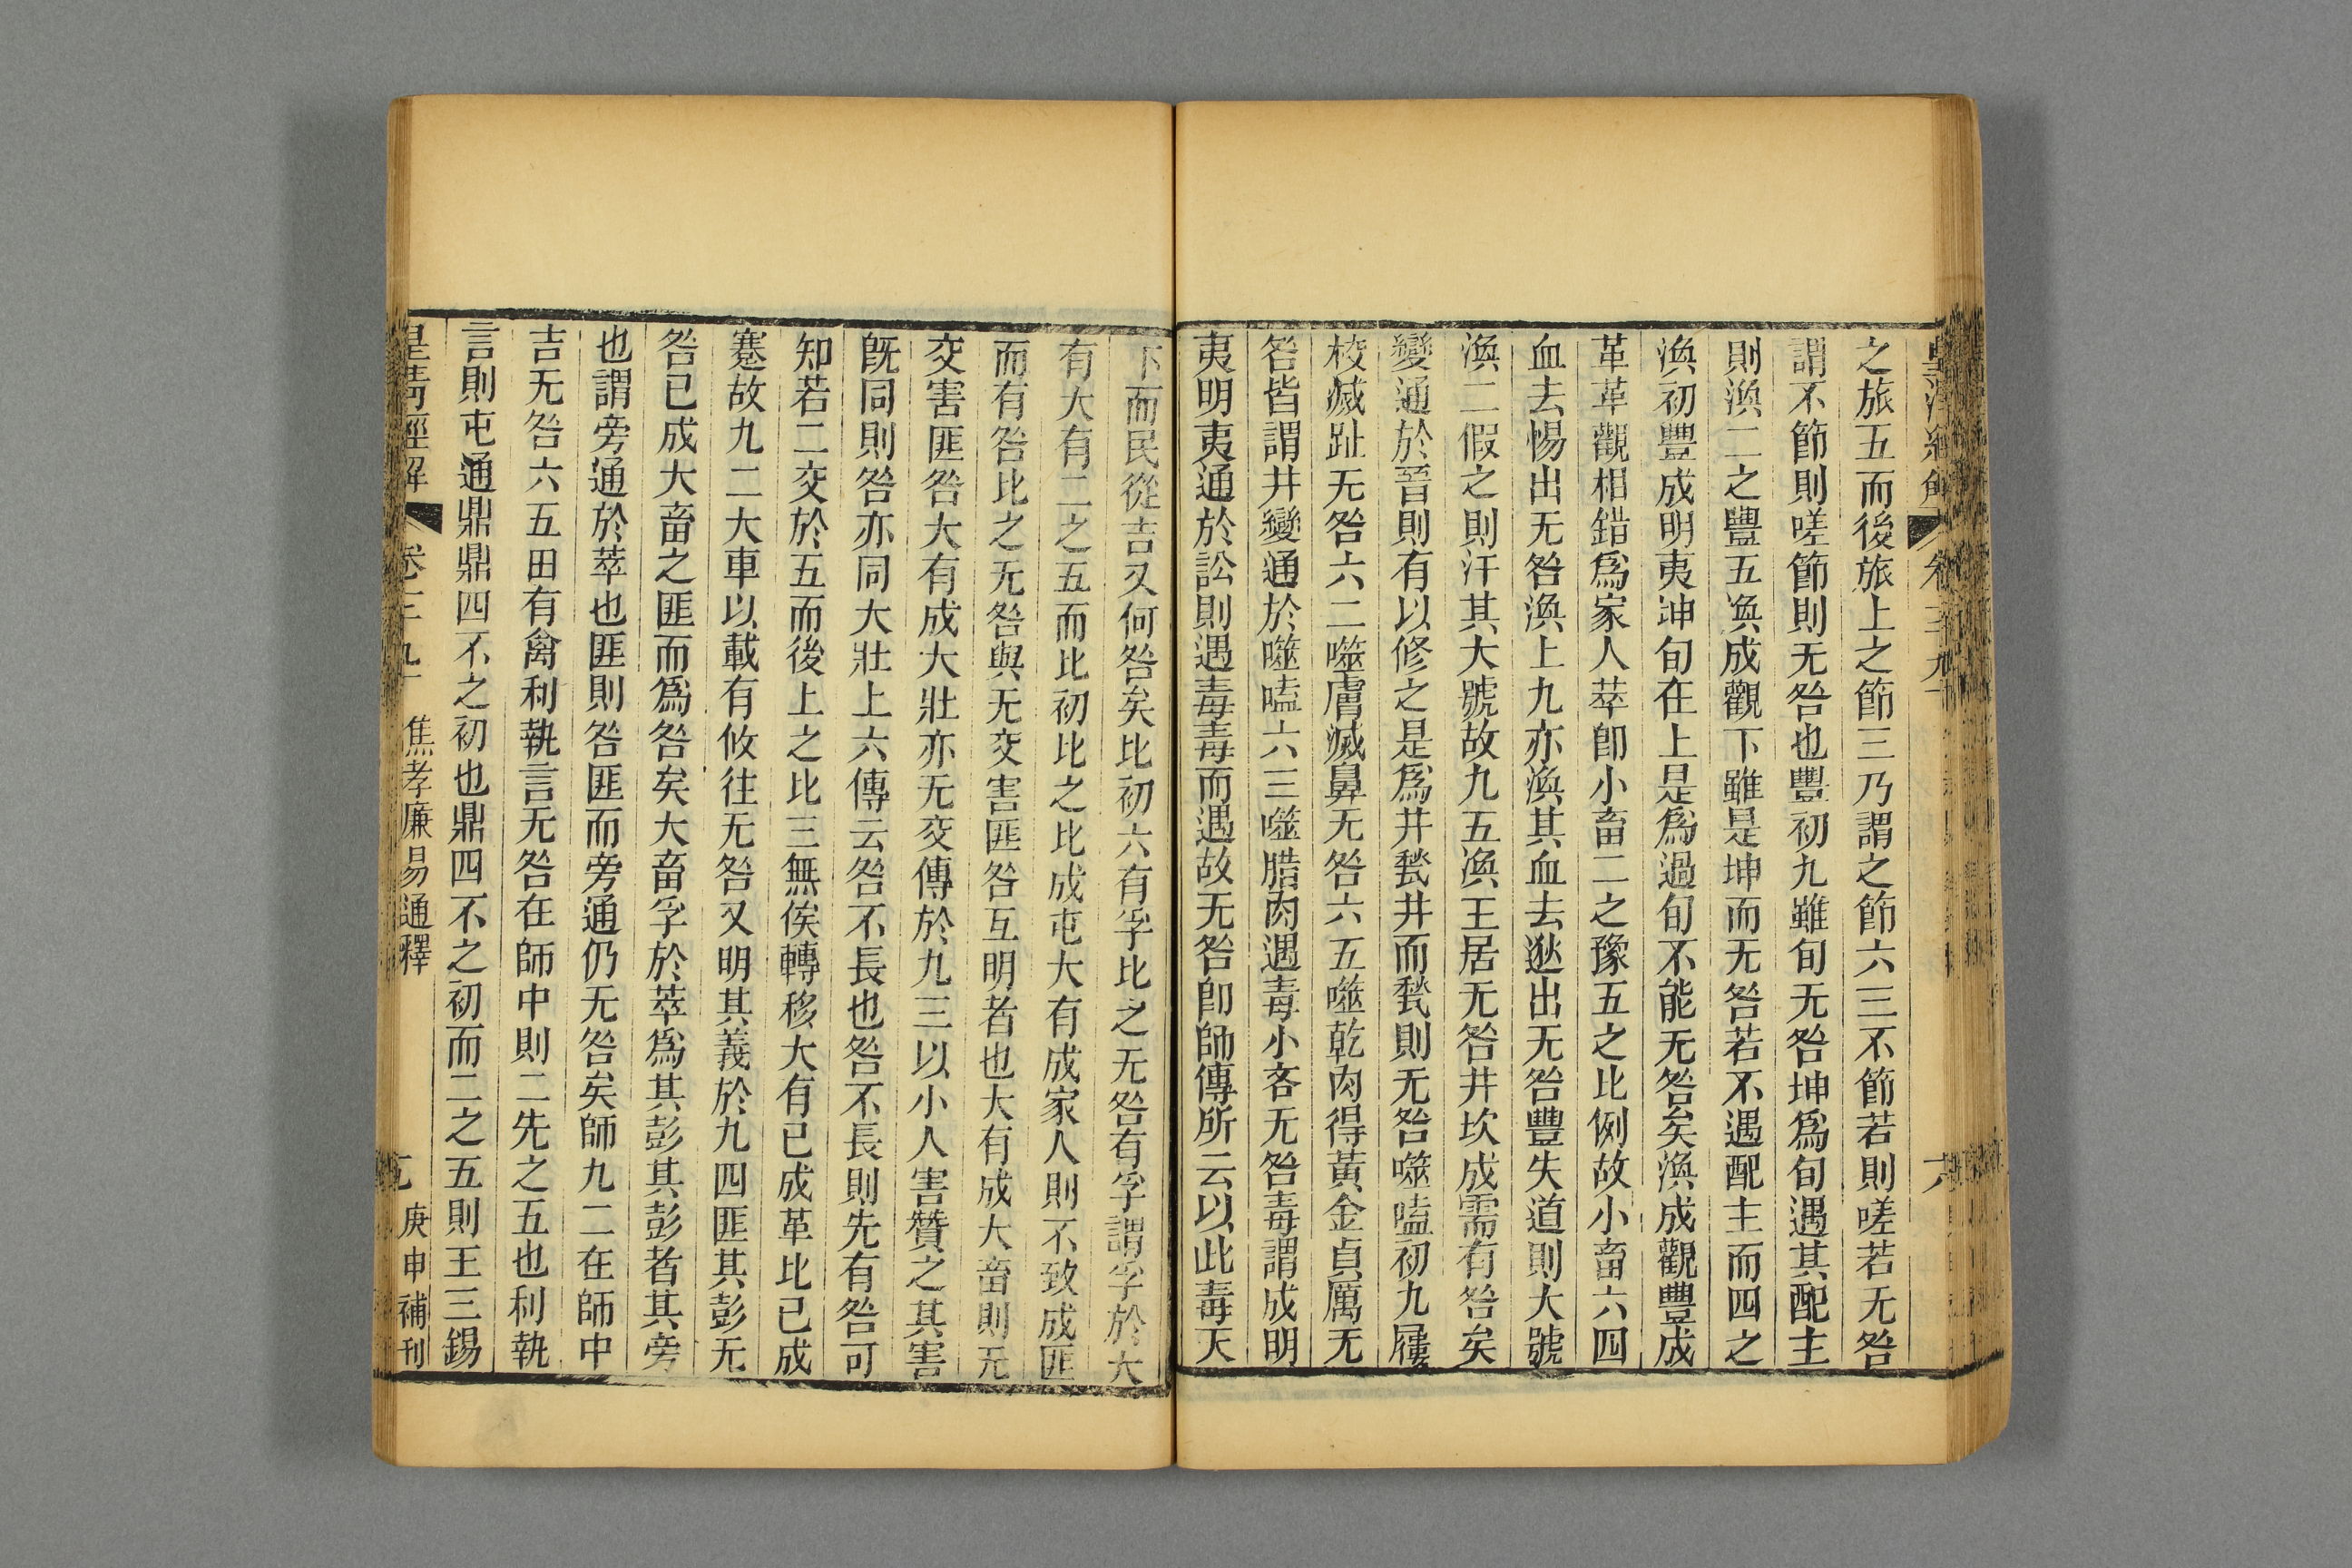 之旅五而後旅上之節三乃謂之節六三不節若則嗟若无咎
謂不節則嗟節則无咎也豐初九雖旬无咎坤爲旬遇其配主
則渙二之豐五渙成觀下雖是坤而无咎若不遇配主而四之
渙初豐成明夷坤旬在上是爲過旬不能无咎矣渙成觀豐成
革革觀相錯爲家人萃卽小畜二之豫五之比例故小畜六四
血去惕出无咎渙上九亦渙其血去逖出无咎豐失道則大號
渙二假之則汗其大號故九五渙王居无咎井坎成需有咎矣
變通於晉則有以修之是爲井甃井而甃則无咎噬嗑初九屨
校滅趾无咎六二噬膚滅鼻无咎六五噬乾肉得黃金貞厲无
咎皆謂井變通於噬嗑六三噬腊肉遇毒小吝无咎毒謂成明
夷明夷通於訟則遇毒毒而遇故无咎卽師傳所云以此毒天
下而民從吉又何咎矣比初六有孚比之无咎有孚謂孚於大
有大有二之五而比初比之比成屯大有成家人則不致成匪
而有咎比之无咎與无交害匪咎互明者也大有成大畜則无
交害匪咎大有成大壯亦无交傳於九三以小人害贊之其害
旣同則咎亦同大壯上六傳云咎不長也咎不長則先有咎可
知若二交於五而後上之比三無俟轉移大有已成革比已成
蹇故九二大車以載有攸往无咎又明其義於九四匪其彭无
咎已成大畜之匪而爲咎矣大畜孚於萃爲其彭其彭者其旁
也謂旁通於萃也匪則咎匪而旁通仍无咎矣師九二在師中
吉无咎六五田有禽利執言无咎在師中則二先之五也利執
言則屯通鼎鼎四不之初也鼎四不之初而二之五則王三錫
皇清經解 焦孝廉易通釋 庚申補刊